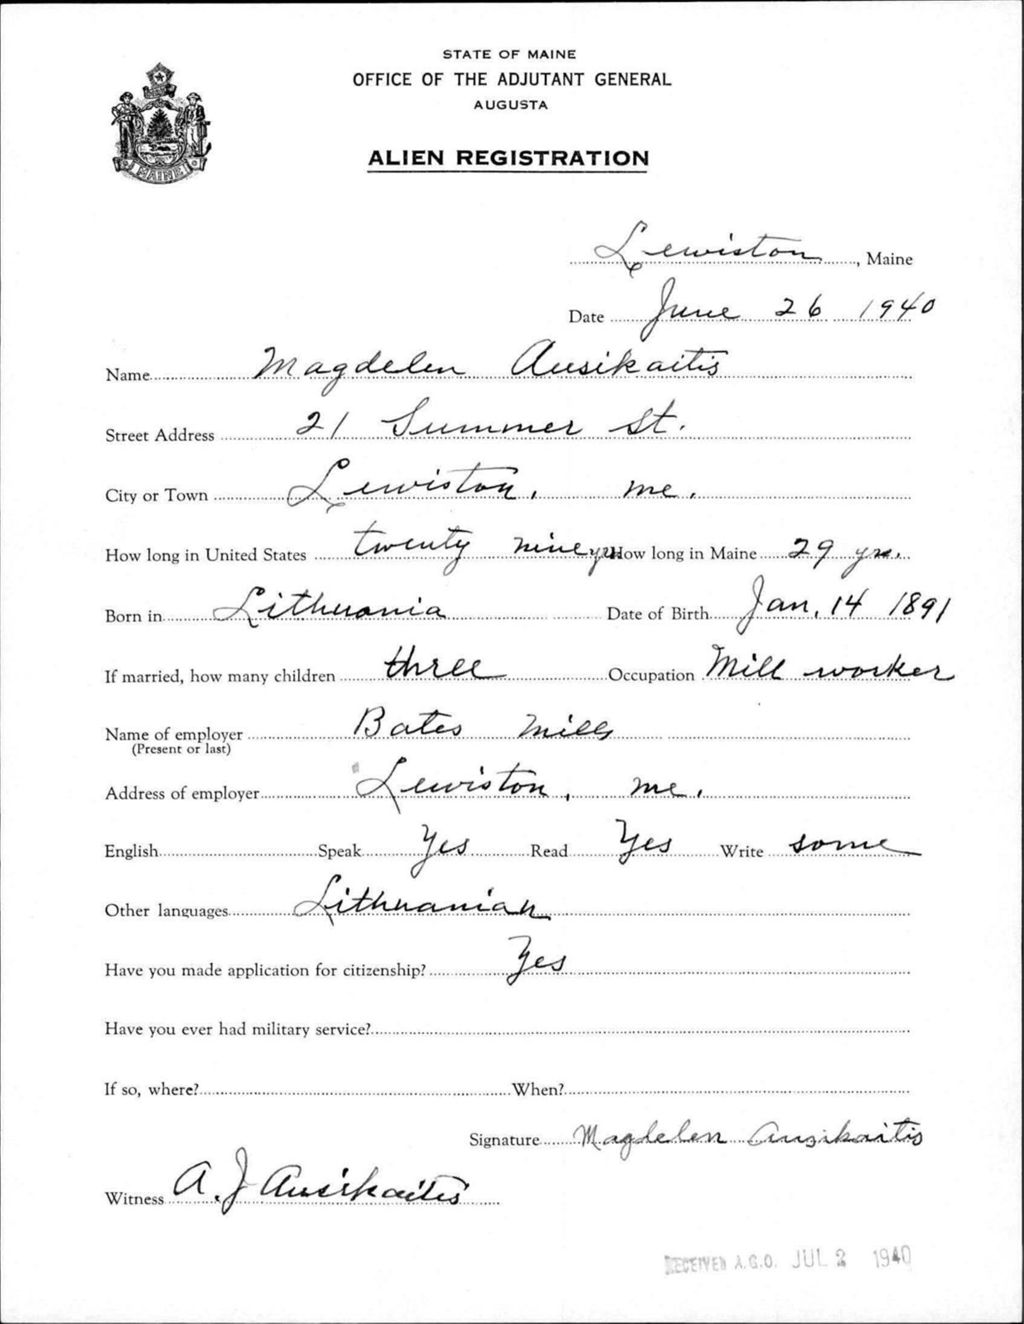 STATE OF MAINE
OFFICE OF THE ADJUTANT GENERAL
AUGUSTA
ALIEN REGISTRATION
MAINE
Lewiston, Maine
Date June 26 1940
Name Magdelen Ausikaitis
Street Address 21 Summer St.
City or Town Lewiston, Me.
How long in United States twenty nine yrs How long in Maine 29 yrs.
Born in Lithuania Date of Birth Jan. 14 1891
If married, how many children three Occupation Mill worker
Name of employer Bates Mills
(Present or last)
Address of employer Lewiston, Me.
English Speak Yes Read Yes Write some
Other languages Lithuanian
Have you made application for citizenship? Yes
Have you ever had military service?
If so, where? When?
Signature Magdelen Auzikaitis
Witness A. J Ausikaitis
RECEIVED A.G.O. JUL 2 1940